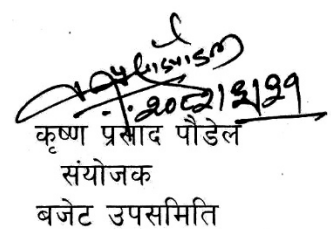 २०८२।३।२१
कृष्ण प्रसाद पौडेल
संयोजक
बजेट उपसमिति